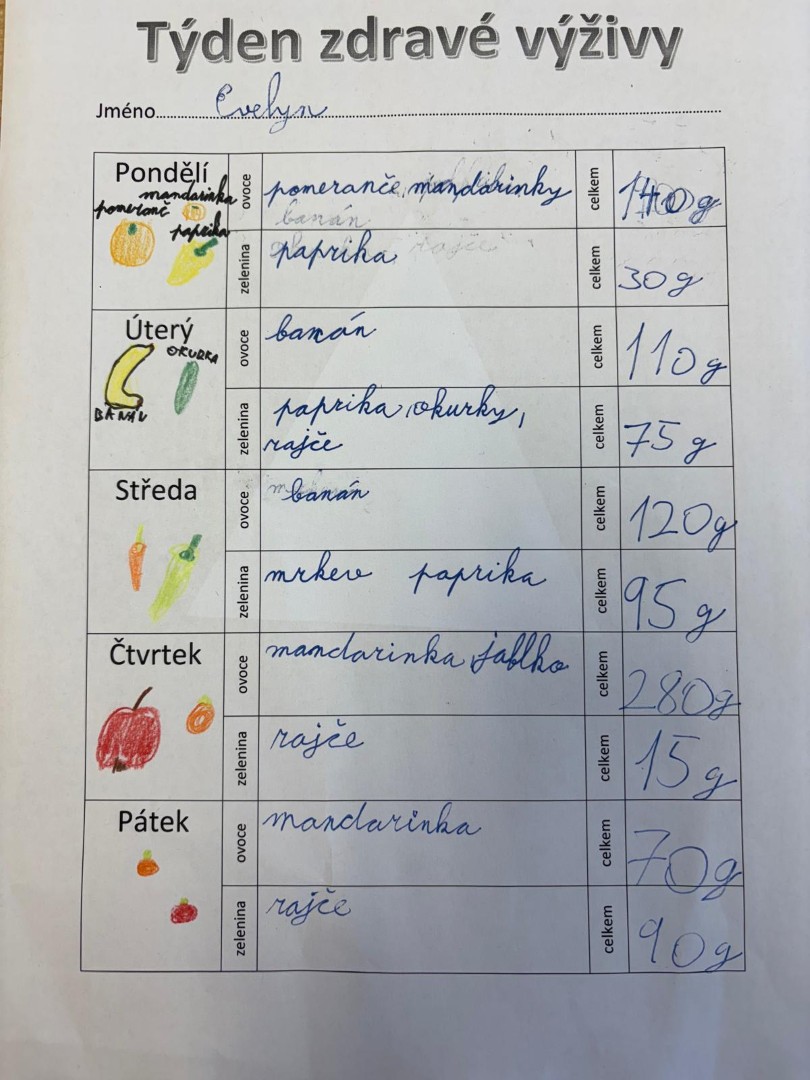 Týden zdravé výživy
Jméno Evelyn
Pondělí
mandarinka
pomeranč
paprika
ovoce
pomeranče, mandarinky
banán
celkem
140g
zelenina
paprika
rajče
celkem
30g
Úterý
OKURKA
BANÁN
ovoce
banán
celkem
110g
zelenina
paprika, okurky,
rajče
celkem
75g
Středa
ovoce
banán
celkem
120g
zelenina
mrkev paprika
celkem
95g
Čtvrtek
ovoce
mandarinka, jablko
celkem
280g
zelenina
rajče
celkem
15g
Pátek
ovoce
mandarinka
celkem
70g
zelenina
rajče
celkem
90g